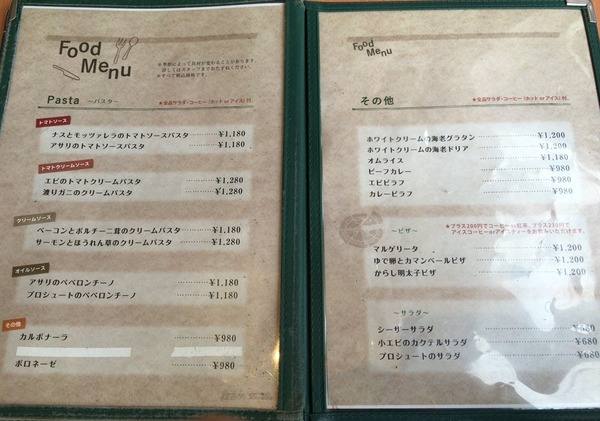 Food
Menu
※季節によって具材が変わることがあります。
詳しくはスタッフまでおたずねください。
※すべて税込価格です。
Pasta ～パスタ～
★全品サラダ・コーヒー(ホット or アイス)付。
トマトソース
ナスとモッツァレラのトマトソースパスタ ………¥1,180
アサリのトマトソースパスタ ………¥1,180
トマトクリームソース
エビのトマトクリームパスタ ………¥1,280
渡りガニのクリームパスタ ………¥1,280
クリームソース
ベーコンとポルチーニ茸のクリームパスタ ………¥1,180
サーモンとほうれん草のクリームパスタ ………¥1,280
オイルソース
アサリのペペロンチーノ ………¥1,180
プロシュートのペペロンチーノ ………¥1,180
その他
カルボナーラ ………¥980
ボロネーゼ ………¥980
Food
Menu
その他
★全品サラダ・コーヒー(ホット or アイス)付。
ホワイトクリームの海老グラタン ………¥1,200
ホワイトクリームの海老ドリア ………¥1,200
オムライス ………¥1,180
ビーフカレー ………¥980
エビピラフ ………¥980
カレーピラフ ………¥980
～ピザ～
★プラス200円でコーヒーor紅茶、プラス230円で
アイスコーヒーorアイスティーをお飲みいただけます。
マルゲリータ ………¥1,200
ゆで卵とカマンベールピザ ………¥1,200
からし明太子ピザ ………¥1,200
～サラダ～
シーザーサラダ ………¥680
小エビのカクテルサラダ ………¥680
プロシュートのサラダ ………¥680